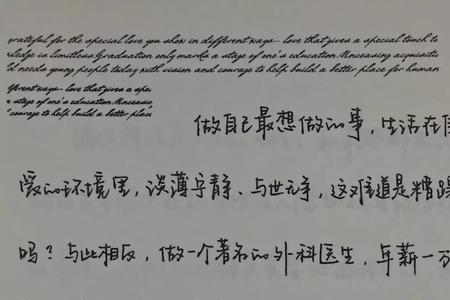 grateful for the special love you show in different ways-- love that gives a special touch to
ledge is limitless Graduation only marks a stage of one's education Unceasing acquisiti
ld needs young people today with vision and courage to help build a better place for human
fferent ways-- love that gives a spec
a stage of one's education Unceasin
courage to help build a better place
做自己最想做的事，生活在自
爱的环境里，淡薄宁静、与世无争，这难道是糟蹋
吗？与此相反，做一个著名的外科医生，年薪一万